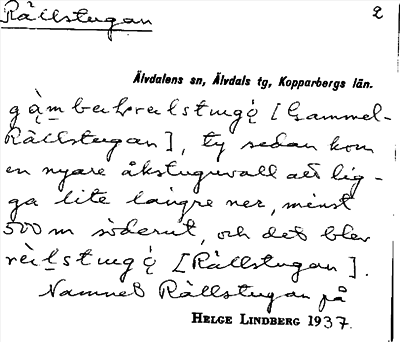 Rällstugan 2
Älvdalens sn, Älvdals tg, Kopparbergs län.
[Gammel-
Rällstugan], ty sedan kom
en nyare åkstuguvall att lig-
ga lite längre ner, minst
500 m söderut, och det blev
[Rällstugan].
Namnet Rällstugan på
HELGE LINDBERG 1937.